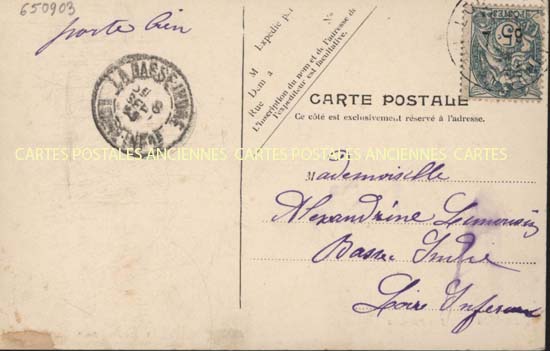 650903
porte bien
LA BASSE-INDRE
M Expédié par
Dem à
Rue No
L'inscription du nom et de l'adresse de
l'expéditeur est facultative.
POSTES
5
CARTE POSTALE
Ce côté est exclusivement réservé à l'adresse.
CARTES POSTALES ANCIENNES CARTES POSTALES ANCIENNES CARTES
Mademoiselle
Alexandrine Limousin
Basse Indre
Loire Inférieure